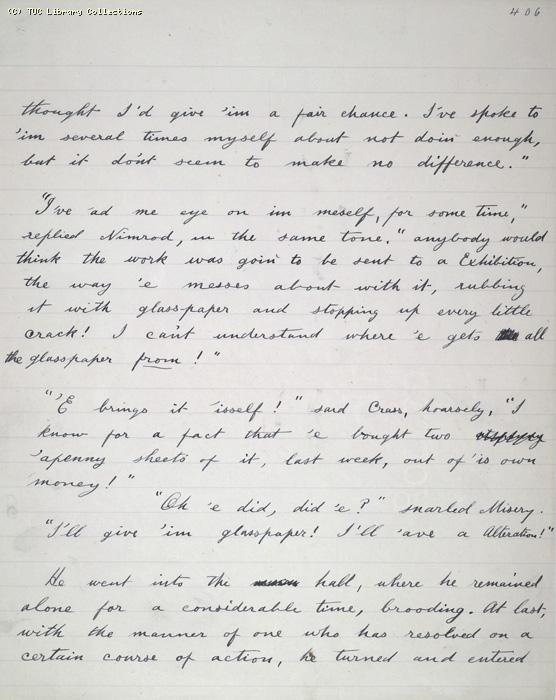 (C) TUC Library Collections
406
thought I'd give 'im a fair chance. I've spoke to
'im several times myself about not doin' enough,
but it don't seem to make no difference."
"I've 'ad me eye on im meself, for some time,"
replied Nimrod, in the same tone. "anybody would
think the work was goin' to be sent to a Exhibition,
the way 'e messes about with it, rubbing
it with glasspaper and stopping up every little
crack! I can't understand where 'e gets all
the glasspaper from!"
"'E brings it 'isself!" said Crass, hoarsely, "I
know for a fact that 'e bought two
'apenny sheets of it, last week, out of 'is own
money!"
"Oh 'e did, did 'e?" snarled Misery.
"I'll give 'im glasspaper! I'll 'ave a Alteration!"
He went into the hall, where he remained
alone for a considerable time, brooding. At last,
with the manner of one who has resolved on a
certain course of action, he turned and entered